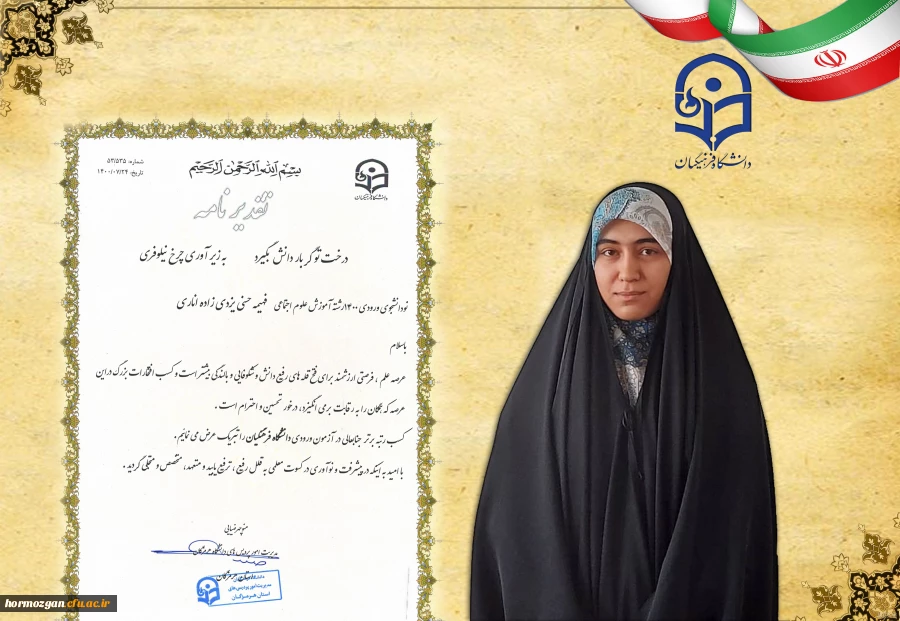 دانشگاه فرهنگیان
شماره: ۵۳/۵۳۵
تاریخ: ۱۴۰۰/۰۷/۲۴
بسم الله الرحمن الرحیم
دانشگاه فرهنگیان
تقدیر نامه
درخت تو گر بار دانش بگیرد به زیر آوری چرخ نیلوفری
نودانشجوی ورودی ۱۴۰۰ رشته آموزش علوم اجتماعی فهیمه حسنی یزدی زاده اناری
باسلام
عرصه علم ، فرصتی ارزشمند برای فتح قله های رفیع دانش و شکوفایی و بالندگی بیشتر است و کسب افتخارات بزرگ در این
عرصه که همگان را به رقابت برمی انگیزد، درخور تحسین و احترام است .
کسب رتبه برتر جنابعالی در آزمون ورودی دانشگاه فرهنگیان را تبریک عرض می نمائیم.
با امید به اینکه در پیشرفت و نوآوری در کسوت معلمی به قلل رفیع ، ترفیع یابید و متعهد، متخصص و متجلی گردید .
منوچهر ضیایی
مدیریت امور پردیس های دانشگاه فرهنگیان
استان هرمزگان
مدیریت امور پردیس های
استان هرمزگان
hormozgan.cfu.ac.ir